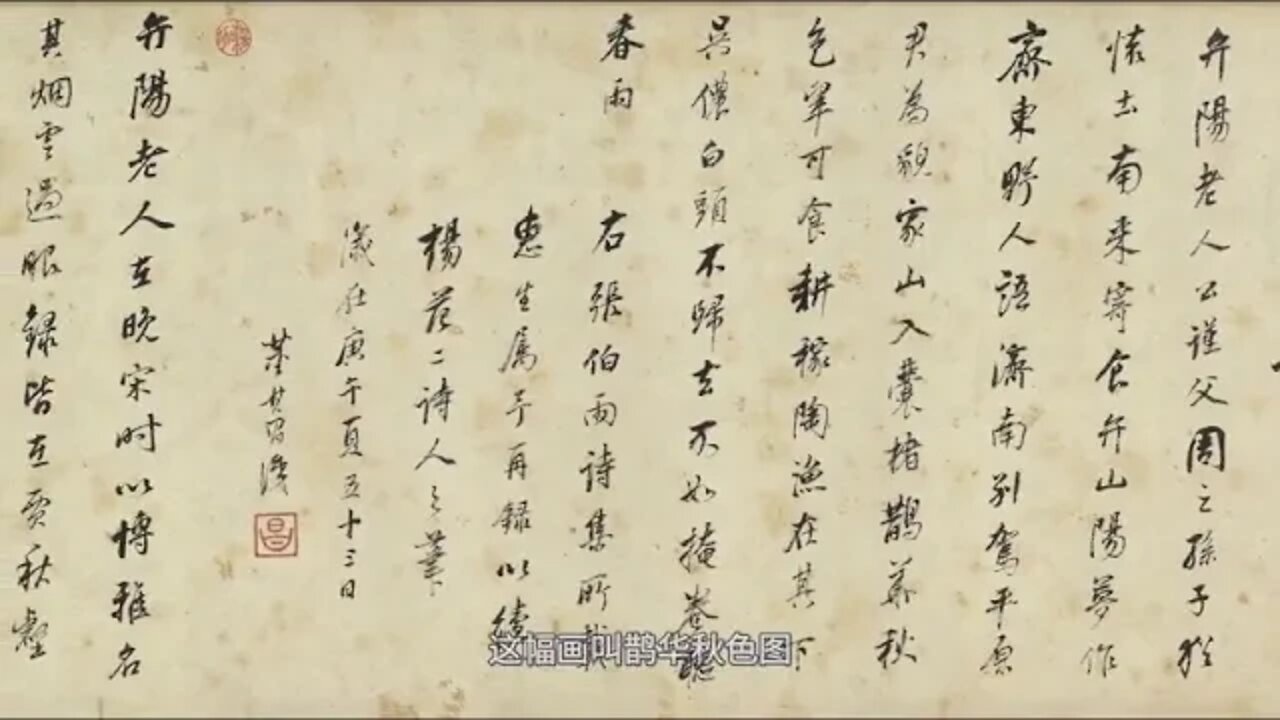 弁陽老人公謹父周之孫子猶
懷土南来寄食弁山陽夢作
齊東野人語濟南别駕平原
君為貌家山入囊楮鵲華秋
色翠可食耕稼陶漁在其下
吳儂白頭不歸去不如掩卷聽
春雨
右張伯雨詩集所載
惠生属予再録以續
楊范二詩人之筆
歲在庚午夏五十三日
董其昌識
昌
弁陽老人在晚宋时以博雅名
其烟雲過眼録皆在賈秋壑
这幅画叫鹊华秋色图